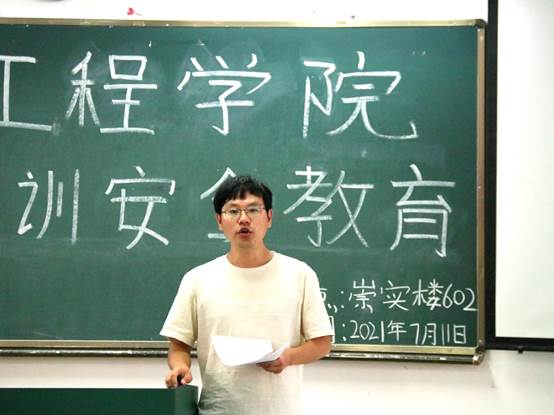 工程学院
训安全教育
点:崇实楼602
:2021年7月11日